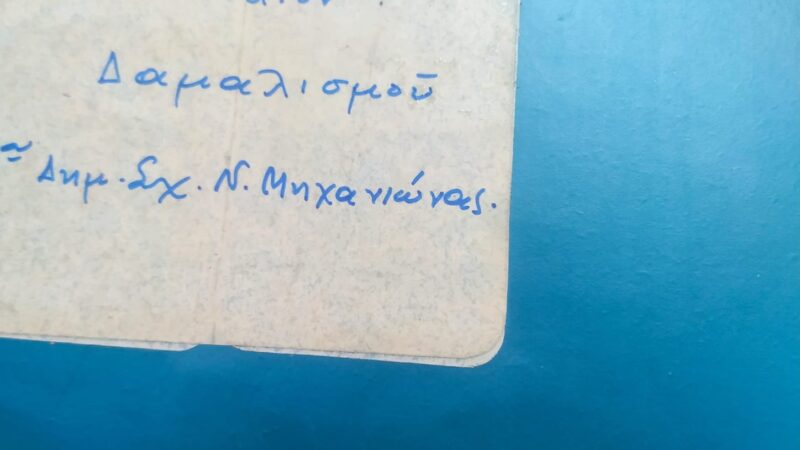 Δαμαλισμοῦ
Δημ. Σχ. Ν. Μηχανιώνας.